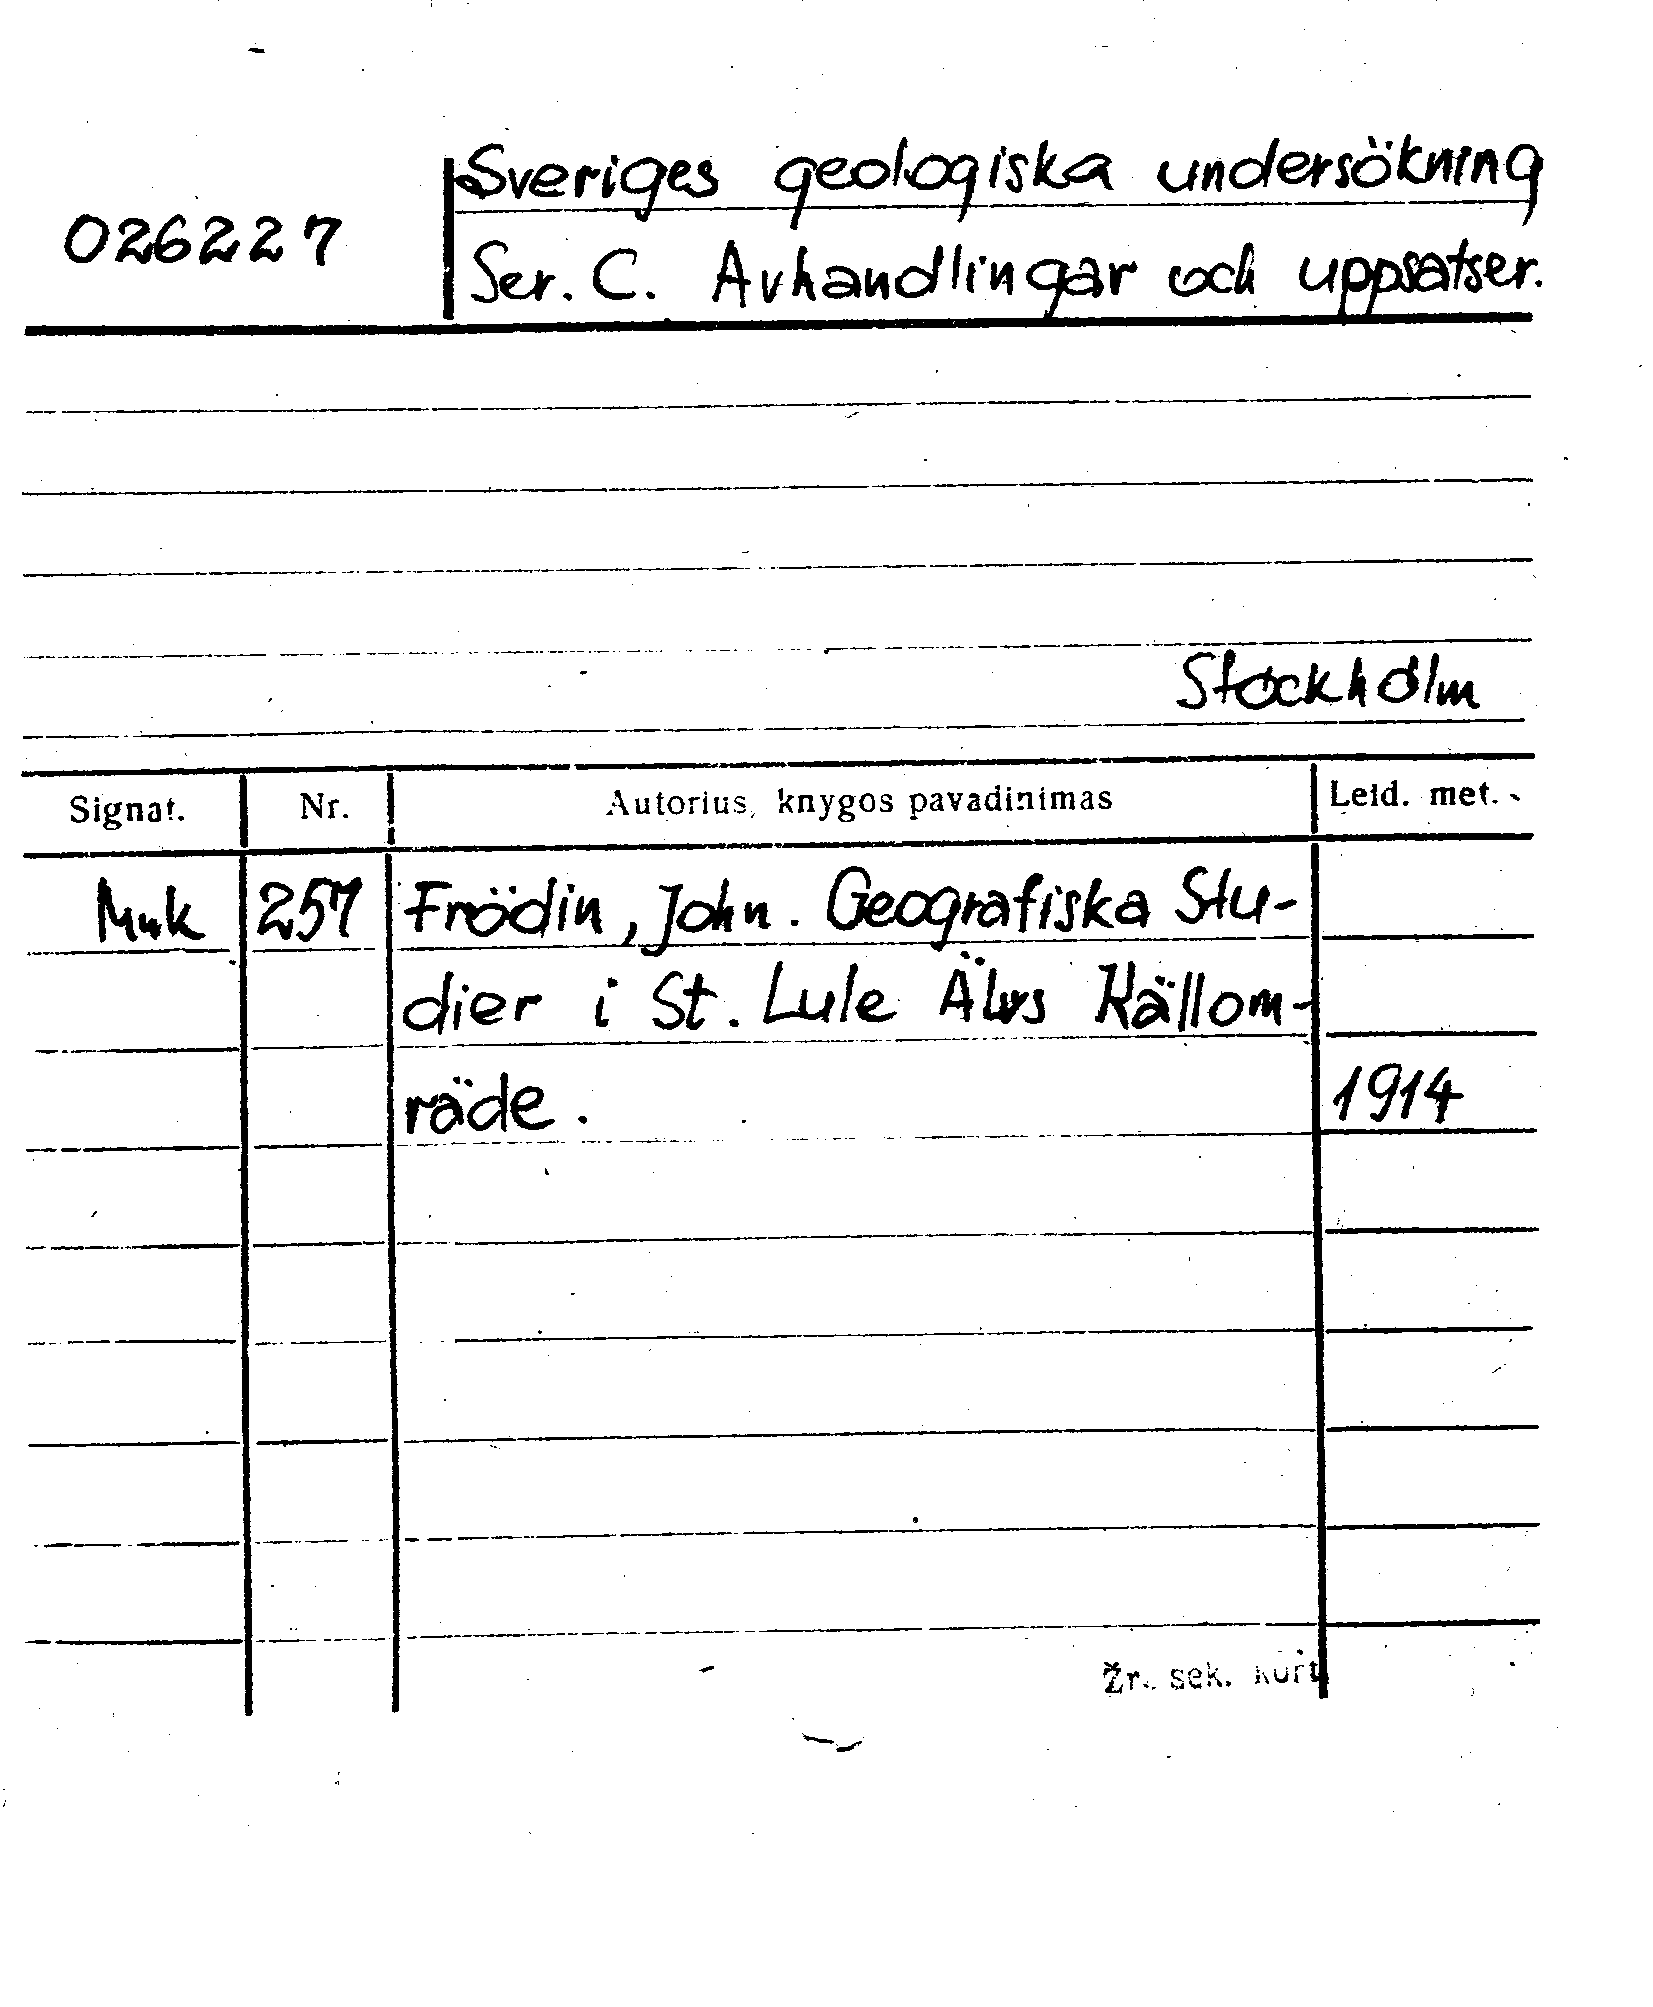 Sveriges geologiska undersökning
026227
Ser. C. Avhandlingar och uppsatser.
Stockholm
Signat. Nr. Autorius, knygos pavadinimas Leid. met.
Muk 257 Frödin, John. Geografiska Stu-
dier i St. Lule Älvs Källom-
räde. 1914
Žr. sek. kort.